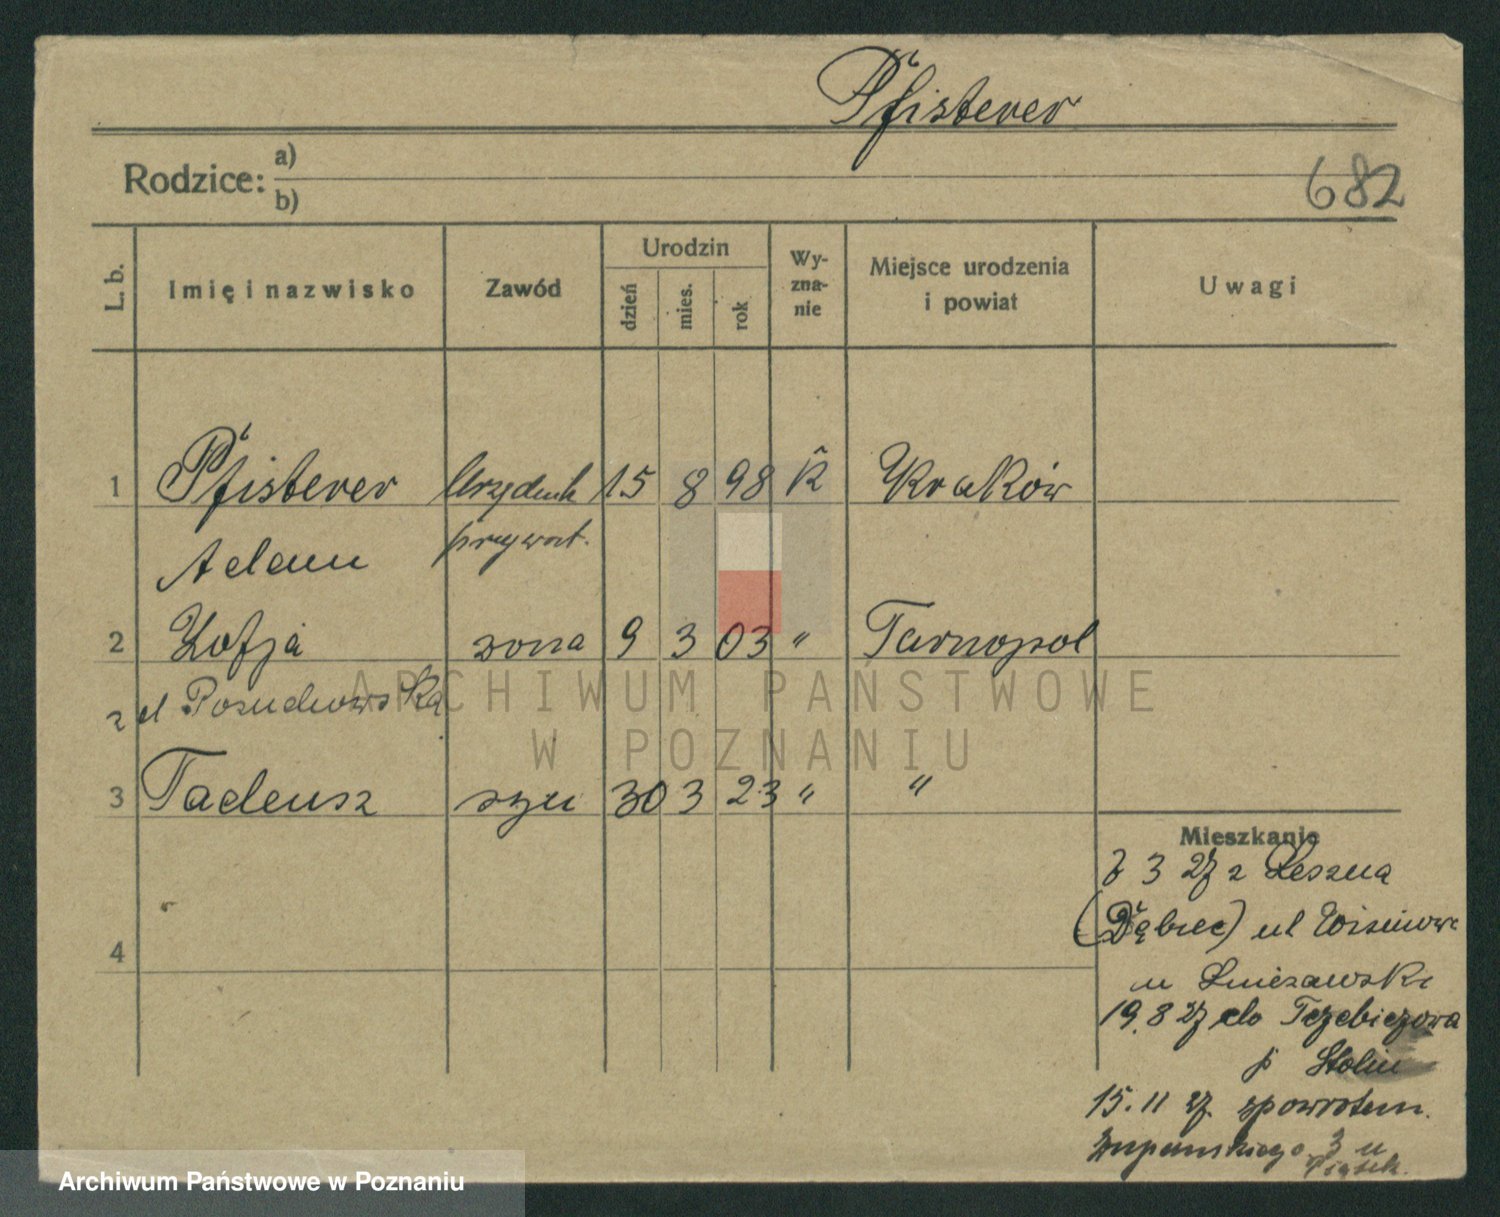 Pfisterer
Rodzice: a)
b)
682
L. b.
Imię i nazwisko
Zawód
Urodzin
dzień
mies.
rok
Wy-
zna-
nie
Miejsce urodzenia
i powiat
Uwagi
1 Pfisterer Urzędnik 15 8 98 R Kraków
Adam prywat.
2 Zofja żona 9 3 03 " Tarnopol
z d
3 Tadeusz syn 30 3 23 " "
4
Mieszkanie
3 27 z Leszna
(Dębiec) ul Wiśniowa
u
19.8 27 do
p Stolin
15.11 27. spowrotem
Żupańskiego 3 u
ARCHIWUM PAŃSTWOWE
W POZNANIU
Archiwum Państwowe w Poznaniu